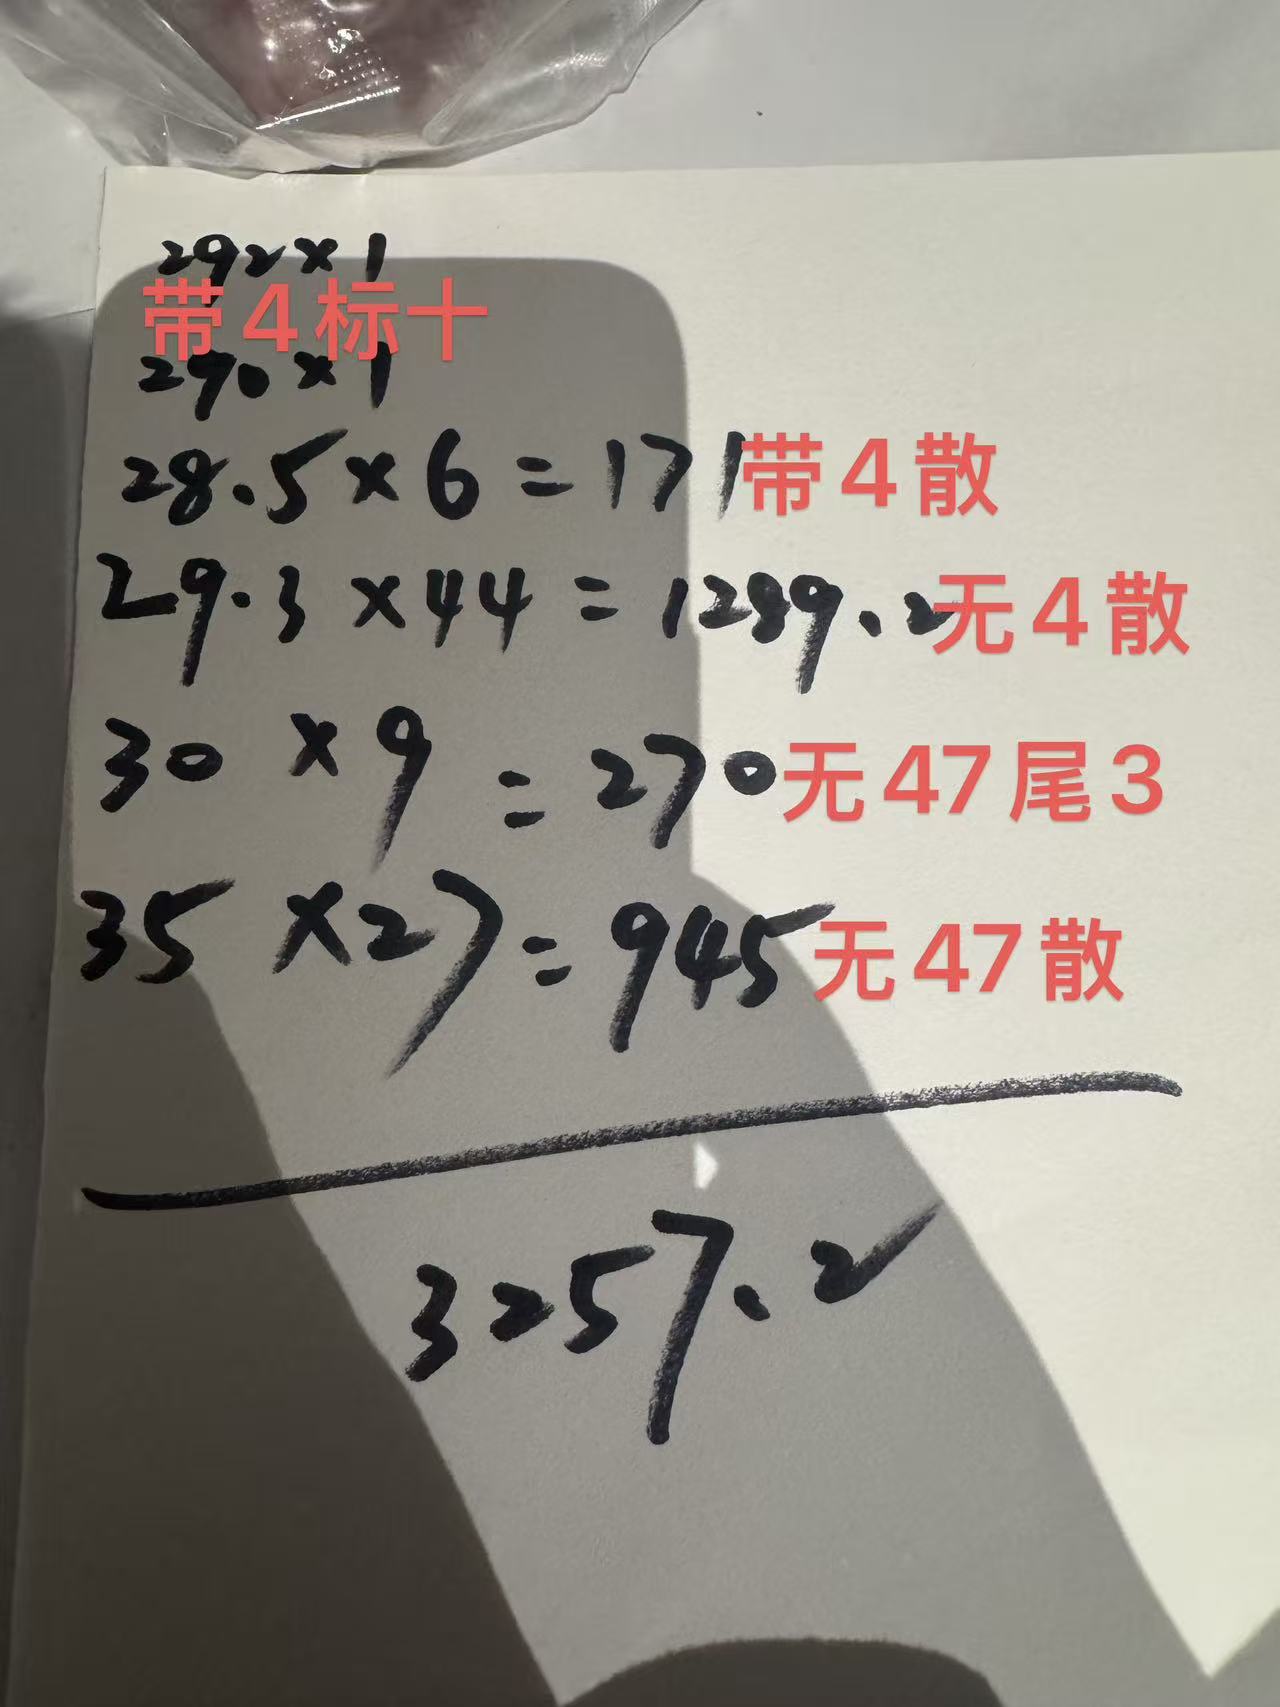 292×1
带4标十
290×1
28.5×6=171 带4散
29.3×44=1289.2 无4散
30×9=270 无47尾3
35×27=945 无47散
3257.2